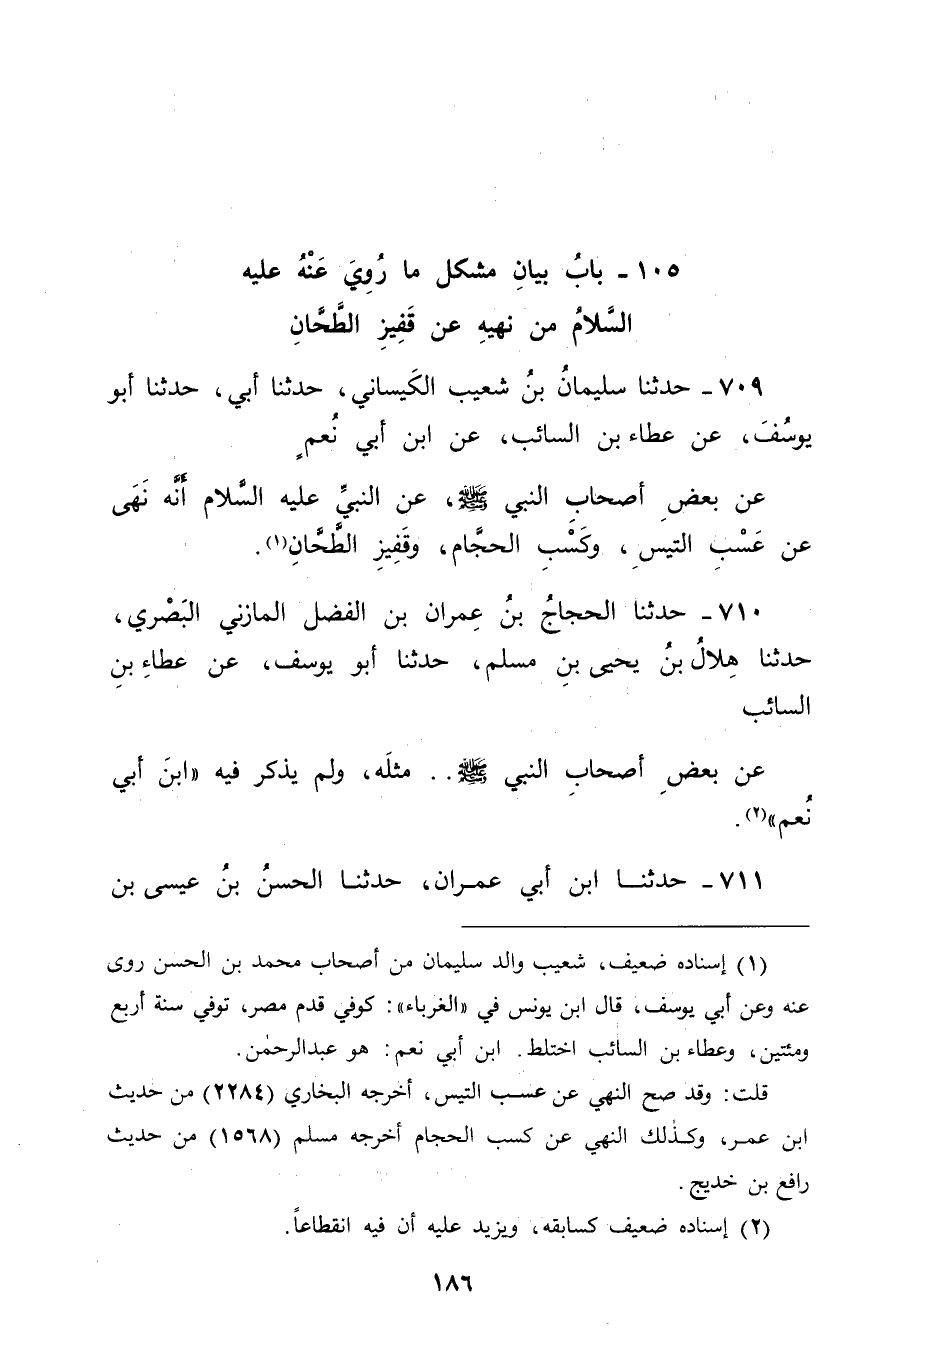 ١٠٥ - بابُ بيانِ مشكل ما رُوِيَ عَنْهُ عليه
السَّلامُ من نهيهِ عن قَفِيزِ الطَّحَّانِ
٧٠٩ - حدثنا سليمانُ بنُ شعيب الكَيساني، حدثنا أبي، حدثنا أبو
يوسُفَ، عن عطاء بن السائب، عن ابن أبي نُعمٍ
عن بعضِ أصحابِ النبي ﷺ، عن النبيِّ عليه السَّلام أنَّه نَهَى
عن عَسْبِ التيسِ، وكَسْبِ الحجَّام، وقَفِيزِ الطَّحَّانِ(١).
٧١٠ - حدثنا الحجاجُ بنُ عِمران بن الفضل المازني البَصْري،
حدثنا هِلالُ بنُ يحيى بنِ مسلم، حدثنا أبو يوسف، عن عطاءِ بنِ
السائب
عن بعضِ أصحابِ النبي ﷺ.. مثلَه، ولم يذكر فيه «ابنَ أبي
نُعم»(٢).
٧١١ - حدثنا ابن أبي عمران، حدثنا الحسنُ بنُ عيسى بن
(١) إسناده ضعيف، شعيب والد سليمان من أصحاب محمد بن الحسن روى
عنه وعن أبي يوسف، قال ابن يونس في «الغرباء»: كوفي قدم مصر، توفي سنة أربع
ومئتين، وعطاء بن السائب اختلط. ابن أبي نعم: هو عبدالرحمٰن.
قلت: وقد صح النهي عن عسب التيس، أخرجه البخاري (٢٢٨٤) من حديث
ابن عمر، وكذٰلك النهي عن كسب الحجام أخرجه مسلم (١٥٦٨) من حديث
رافع بن خديج.
(٢) إسناده ضعيف كسابقه، ويزيد عليه أن فيه انقطاعاً.
١٨٦